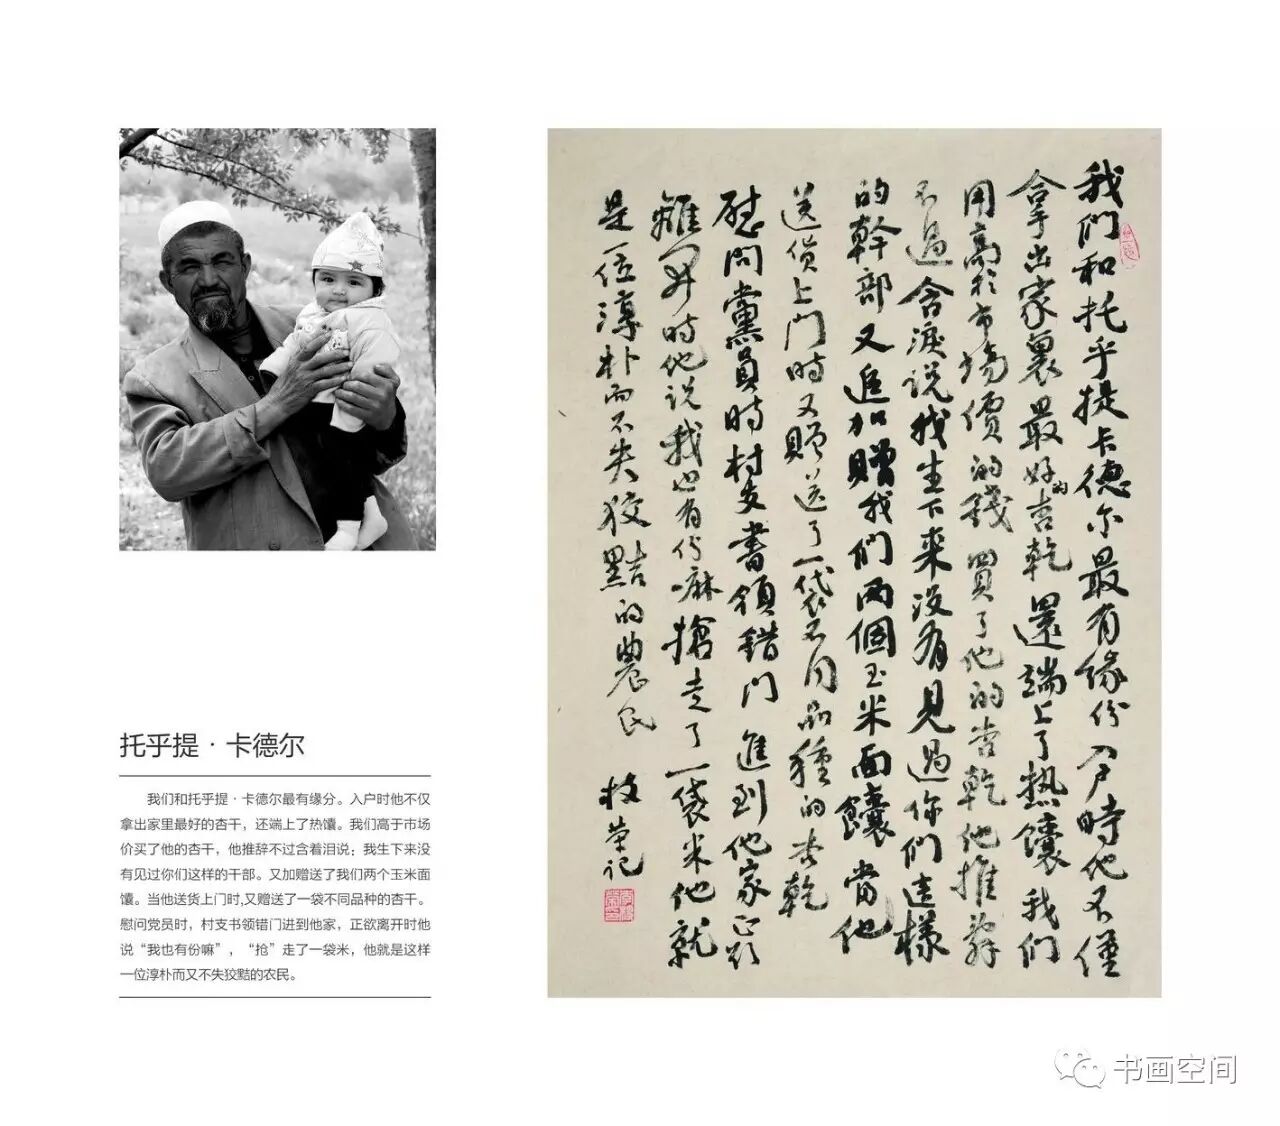 托乎提·卡德尔
我们和托乎提·卡德尔最有缘分。入户时他不仅
拿出家里最好的杏干，还端上了热馕。我们高于市场
价买了他的杏干，他推辞不过含着泪说：我生下来没
有见过你们这样的干部。又加赠送了我们两个玉米面
馕。当他送货上门时,又赠送了一袋不同品种的杏干。
慰问党员时，村支书领错门进到他家，正欲离开时他
说“我也有份嘛”，“抢”走了一袋米，他就是这样
一位淳朴而又不失狡黠的农民。
我們和托乎提卡德尔最有緣份入户時他不僅
拿出家裏最好的杏乾還端上了热饢我們
用高於市場價的錢買了他的杏乾他推辞
不過含淚说我生下来没有見過你们這樣
的幹部又追加贈我們两個玉米面饢當他
送货上门時又贈送了一袋不同品種的杏乾
慰問黨員時村支書領錯门進到他家正欲
離开時他说我也有份嘛搶走了一袋米他就
是一位淳朴而不失狡黠的農民
枝荣记
书画空间